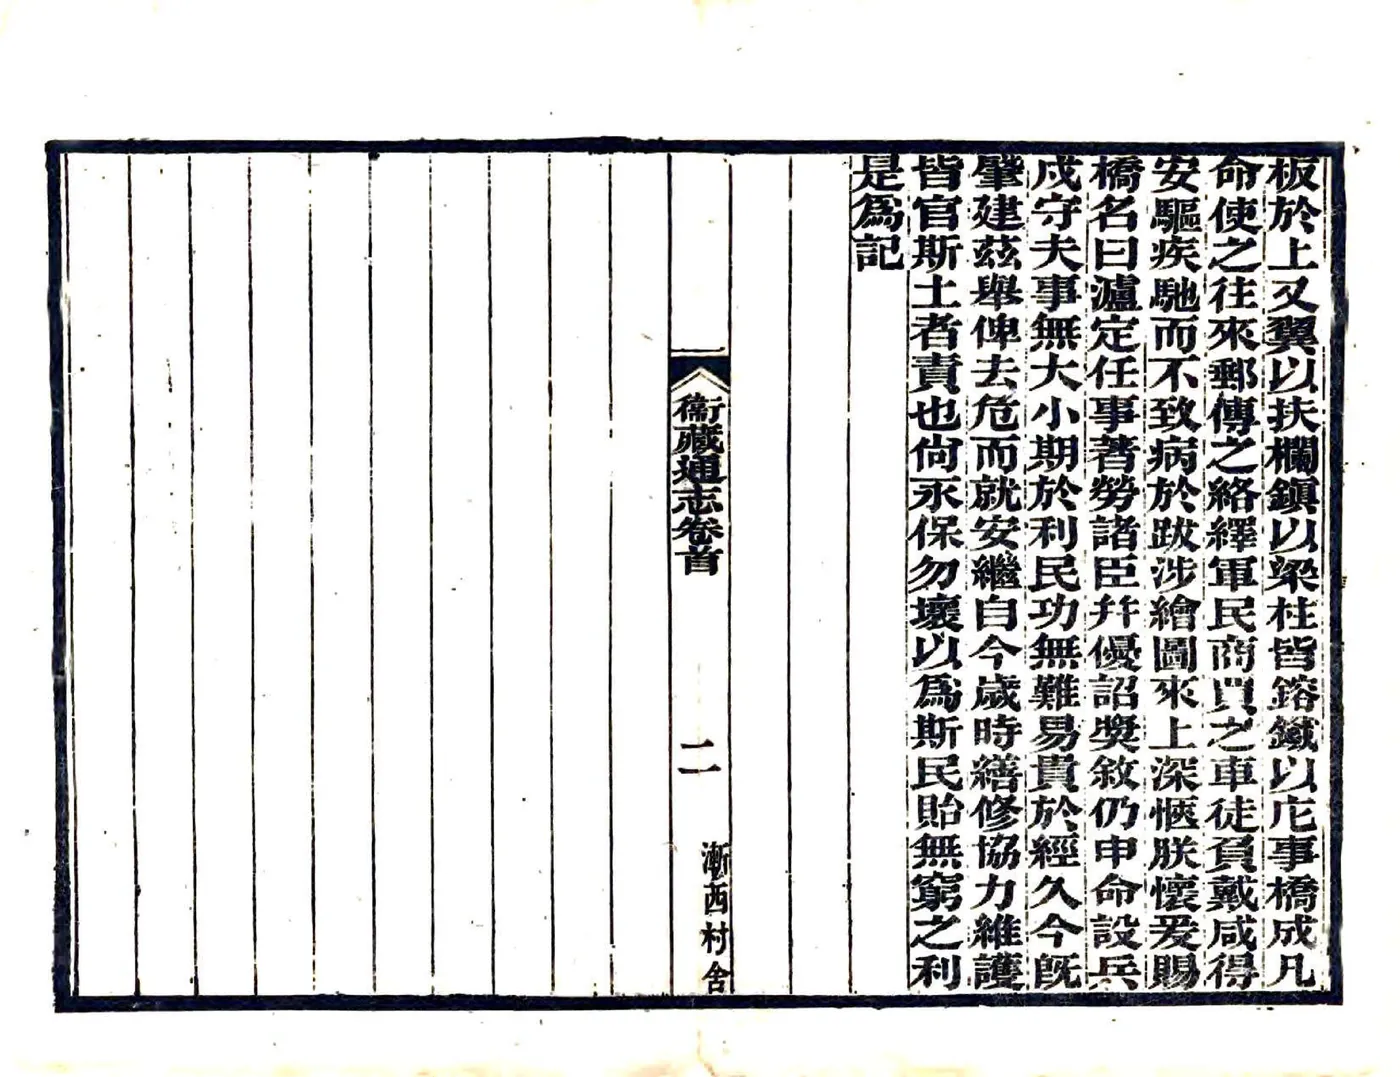 板於上又翼以扶欄鎮以梁柱皆鎔鐵以庀事橋成凡
命使之往來郵傳之絡繹軍民商賈之車徒負戴咸得
安驅疾馳而不致病於跋涉繪圖來上深愜朕懷爰賜
橋名曰瀘定任事著勞諸臣幷優詔獎敘仍申命設兵
戍守夫事無大小期於利民功無難易貴於經久今旣
肇建茲舉俾去危而就安繼自今歲時繕修協力維護
皆官斯土者責也尙永保勿壞以爲斯民貽無窮之利
是爲記
衞藏通志卷首
二
漸西村舍